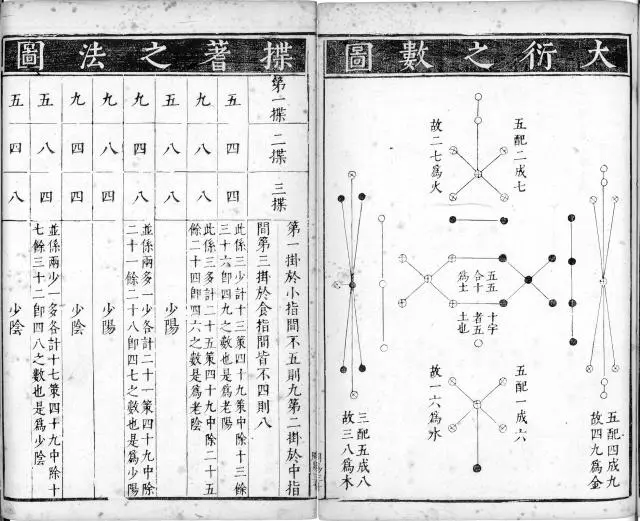 大衍之數圖
五配二成七
故二七為火
五五
合十
為土
十字
者五
土也
五配一成六
故一六為水
五配四成九
故四九為金
三配五成八
故三八為木
揲蓍之法圖
第一揲 二揲 三揲
第一掛於小指間不五則九第二掛於中指
間第三掛於食指間皆不四則八
五 四 四
此係三少計十三策四十九策中除十三餘
三十六即四九之數也是為老陽
九 八 八
此係三多計二十五策四十九中除二十五
餘二十四即四六之數也是為老陰
五 八 八
少陽
九 四 八
並係兩多一少各計二十一策四十九中除
二十一餘二十八即四七之數也是為少陽
九 八 四
少陽
九 四 四
少陰
五 八 四
並係兩少一多各計十七策四十九中除十
七餘三十二即四八之數也是為少陰
五 四 八
少陰